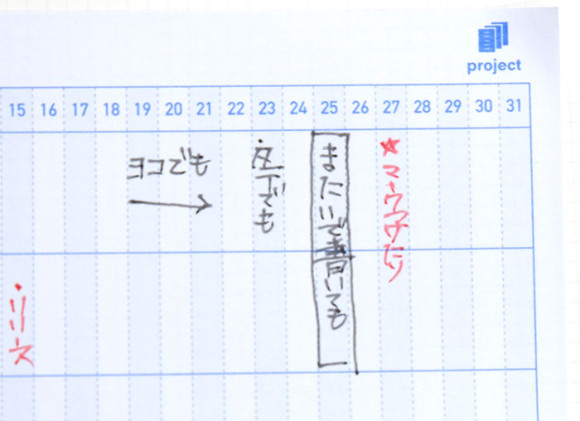 project
15 16 17 18 19 20 21 22 23 24 25 26 27 28 29 30 31
ヨコでも
→
・左下でも
またいで書いても
★マークつけたり
・リリース